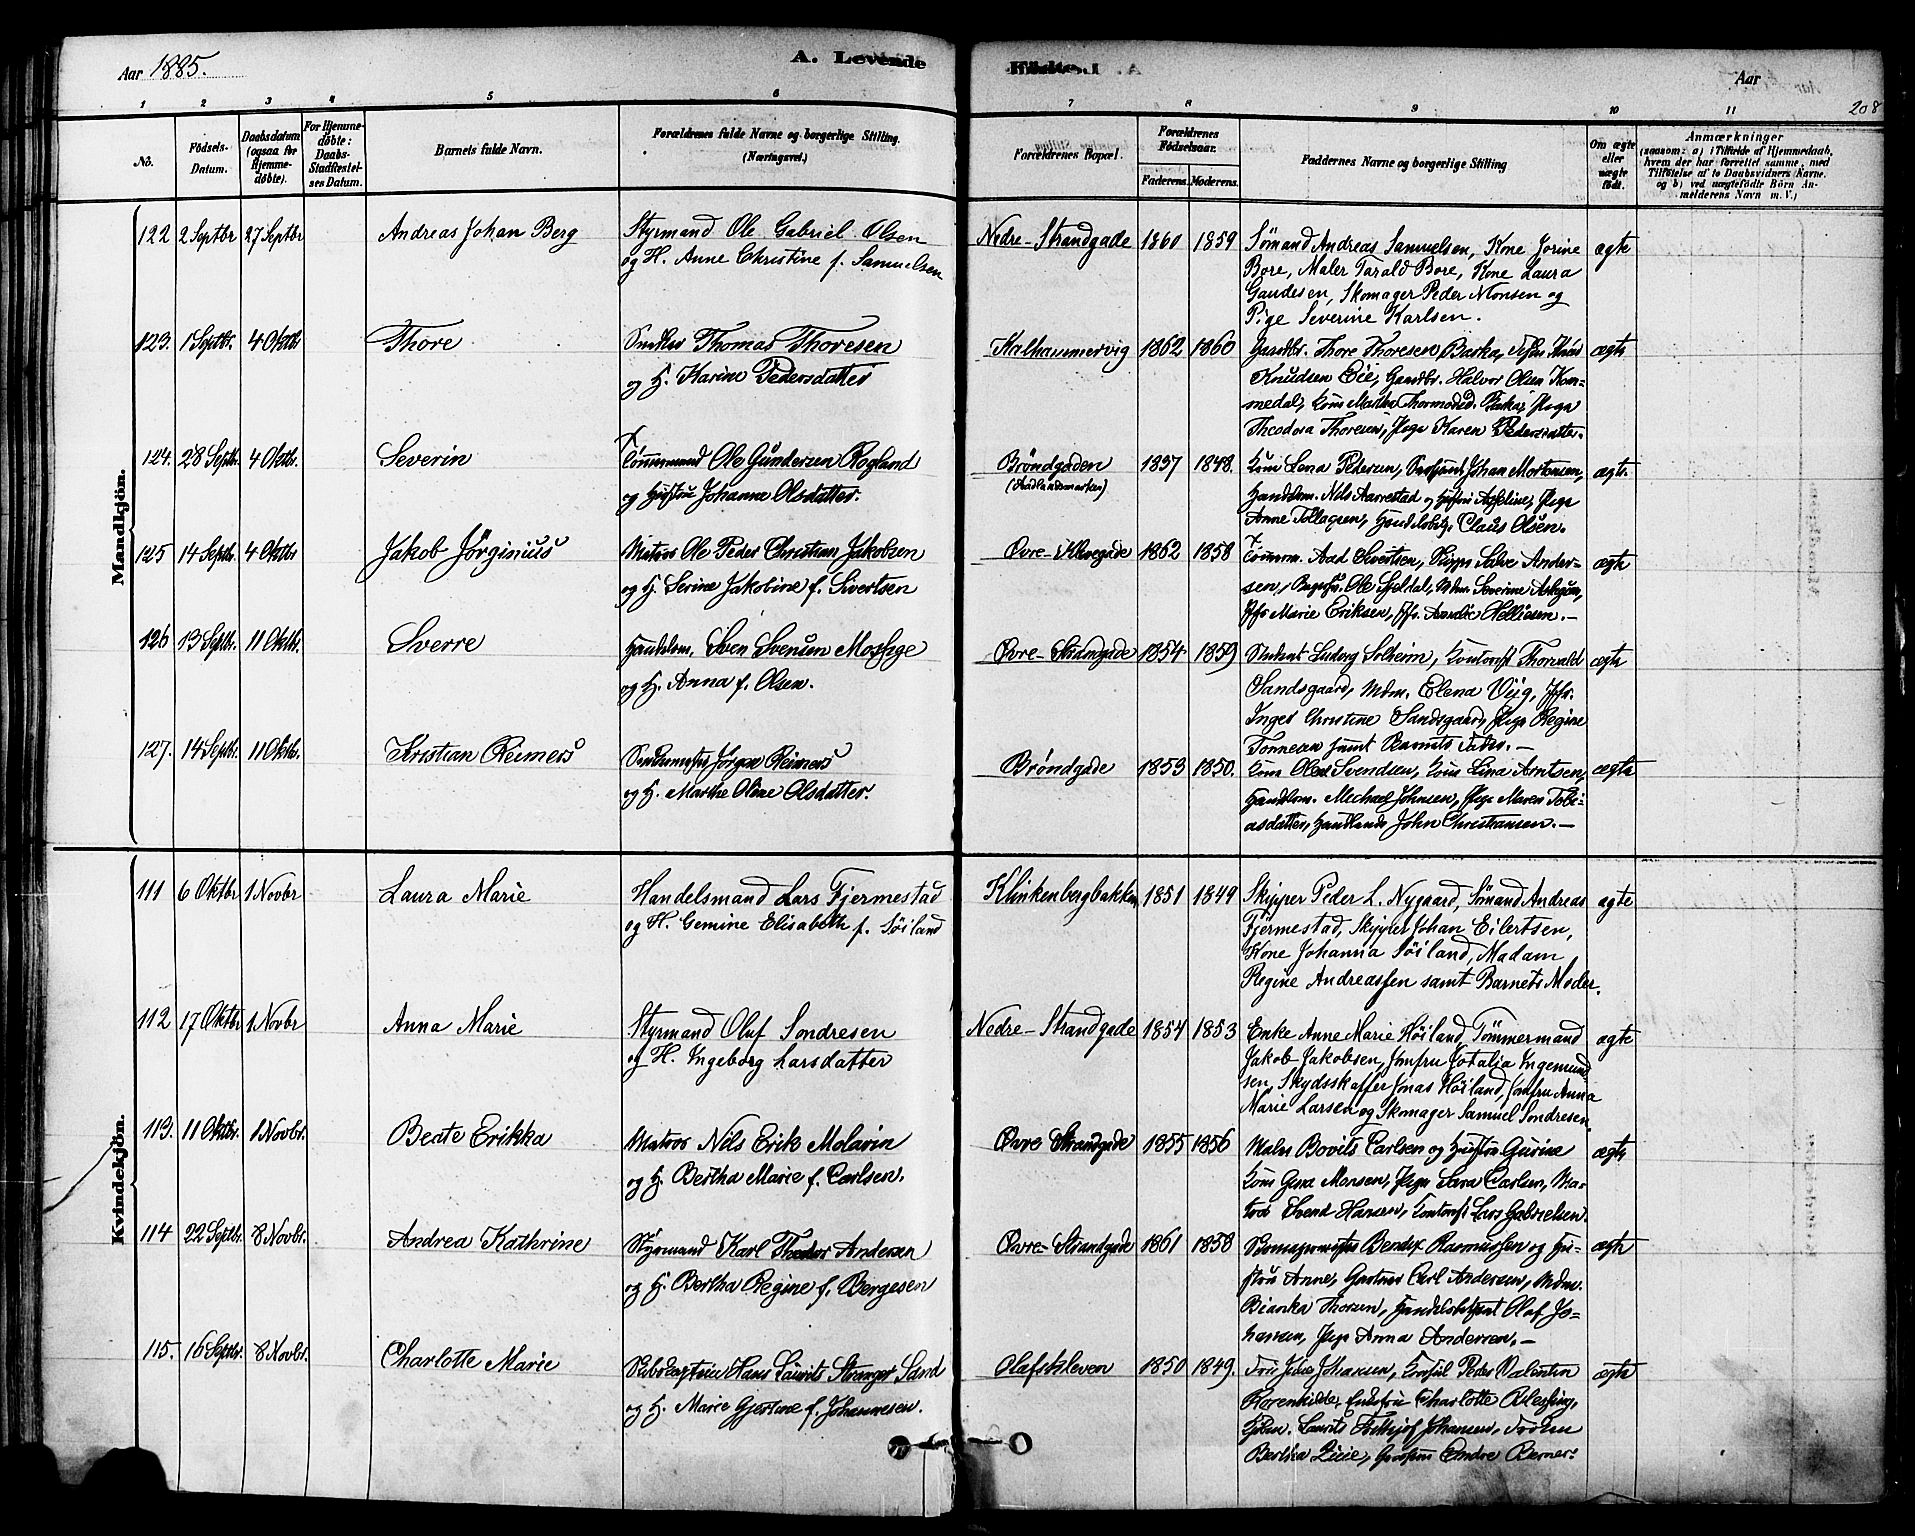 Aar 1885.
A. Levende
Fødte.
Aar
208
1 2 3 4 5 6 7 8 9 10 11
No.
Fødsels-
Datum.
Daabsdatum
(ogsaa for
Hjemme-
døbte).
For Hjemme-
døbte:
Daabs-
Stadfæstel-
ses Datum.
Barnets fulde Navn.
Forældrenes fulde Navne og borgerlige Stilling.
(Næringsvei.)
Forældrenes Bopæl.
Forældrenes
Fødselsaar.
Faderens. Moderens.
Faddernes Navne og borgerlige Stilling
Om ægte
eller
uægte
født.
Anmærkninger
(saasom: a) i Tilfælde af Hjemmedaab,
hvem der har forrettet samme, med
Tilføielse af to Daabsvidners Navne,
og b) ved uægtefødte Børn An-
melderens Navn m. V.)
Mandkjön.
122 2 Septbr 27 Septbr Andreas Johan Berg Styrmand Ole Gabriel Olsen Nedre-Strandgade 1860 1859 Sømand Andreas Samuelsen, Kone Jorine ægte
og H. Anne Christine f. Samuelsen Bore, Maler Tarald Bore, Kone Laura
Gaudesen, Skomager Peder Monsen og
Pige Severine Karlsen.
123. 1 Septbr. 4 Oktbr Thore Thomas Thoresen Kalhammervig 1862 1860 Gaardbr. Thore Thoresen Barka, ægte
og H. Karine Pedersdatter Knudsen Eie, Gaardbr. Halvor Olsen Kom-
medal, Kone Martha Thormodsd. Barka, Pige
Theodora Thoresen, Pige Karen Pedersdatter.
124. 28 Septbr. 4 Oktbr. Severin Tømmermand Ole Gundersen Rogland Brøndgaden 1857 1848. Kone Lena Pedersen, Johan Mortensen, ægte.
og Hustru Johanne Olsdatter. (Aadlandsmarken) Handelsm. Nils Aarrestad og Hustru Axeline, Pige
Anne Tollagsen, Handelsbetj. Claus Olsen.
125 14 Septbr. 4 Oktbr Jakob Jörginius Matros Ole Peder Christian Jakobsen Øvre-Kleivegade 1862 1858 Tømmerm. Aad Sivertsen, Skipper Salve Ander- ægte
og H. Serine Jakobine f. Sivertsen sen, Ole Sjeldal, Mdm. Severine
Jfr Marie Eriksen, Jfr. Amalie Hellisen.
126 13 Septbr. 11 Oktbr. Sverre Handelsm. Sven Svensen Mossige Øvre-Strandgade 1854 1859 Student Ludvig Solheim, Kontorist Thorvald ægte
og H. Anna f. Olsen. Sandsgaard, Mdm. Elena Viig, Jfr.
Inger Christine Sandsgaard, Pige Regine
Tønnesen samt Barnets Fader.
127. 14 Septbr. 11 Oktbr. Kristian Reimers Jörgen Reimers Brøndgade 1853 1850. Kone Olea Svendsen, Kone Lina Arntsen, ægte
og H. Marthe Oline Olsdatter. Handelsm. Michael Johnsen, Pige Maren Tobi-
asdatter, Handlende John Christiansen.
Kvindekjön.
111 6 Oktbr 1 Novbr Laura Marie Handelsmand Lars Fjermestad Klinkenbergbakken 1851 1849 Skipper Peder L. Nygaard, Sömand Andreas ægte
og H. Gemine Elisabeth f. Söiland Fjermestad, Skipper Johan Eilertsen,
Kone Johanna Söiland, Madam
Regine Andreassen samt Barnets Moder.
112 17 Oktbr 1 Novbr Anna Marie Styrmand Oluf Sondresen Nedre-Strandgade 1854 1853 Enke Anne Marie Höiland, Tömmermand ægte
og H. Ingeborg Larsdatter Jakob Jakobsen, Jomfru Jotalia Ingemund-
sen, Skydsskaffer Jonas Höiland, Jomfru Anna
Marie Larsen og Skomager Samuel Sondresen.
113. 11 Oktbr. 1 Novbr. Beate Erikka Matros Nils Erik Molavin Øvre Strandgade 1855 1856 Maler Bovits Carlsen og Hustru Gurine ægte
og H. Bertha Marie f. Carlsen. Kone Gina Monsen, Pige Sara Carlsen, Ma-
tros Svend Hansen, Kontorist Lars Gabrielsen.
114 22 Septbr. 8 Novbr. Andrea Kathrine Styrmand Karl Theodor Andersen Øvre-Strandgade 1861 1858 Bendix Rasmussen og Hu- ægte
og H. Bertha Regine f. Børgesen stru Anne, Gartner Carl Andersen, Mdm.
Bianka Thorsen, Handelsbetjent Olaf Jo-
hansen, Pige Anna Andersen.
115. 16 Septbr. 8 Novbr. Charlotte Marie Skibskaptein Hans Lauritz Stranger Sand Olafskleven 1850 1849. Johansen, Konsul Peder Valentin ægte
og H. Marie Gjertine f. Johannesen. Rosenkilde, Charlotte Blessing,
Laurits Frithjof Johansen, Frøken
Bertha Lucie, Endre Berner.